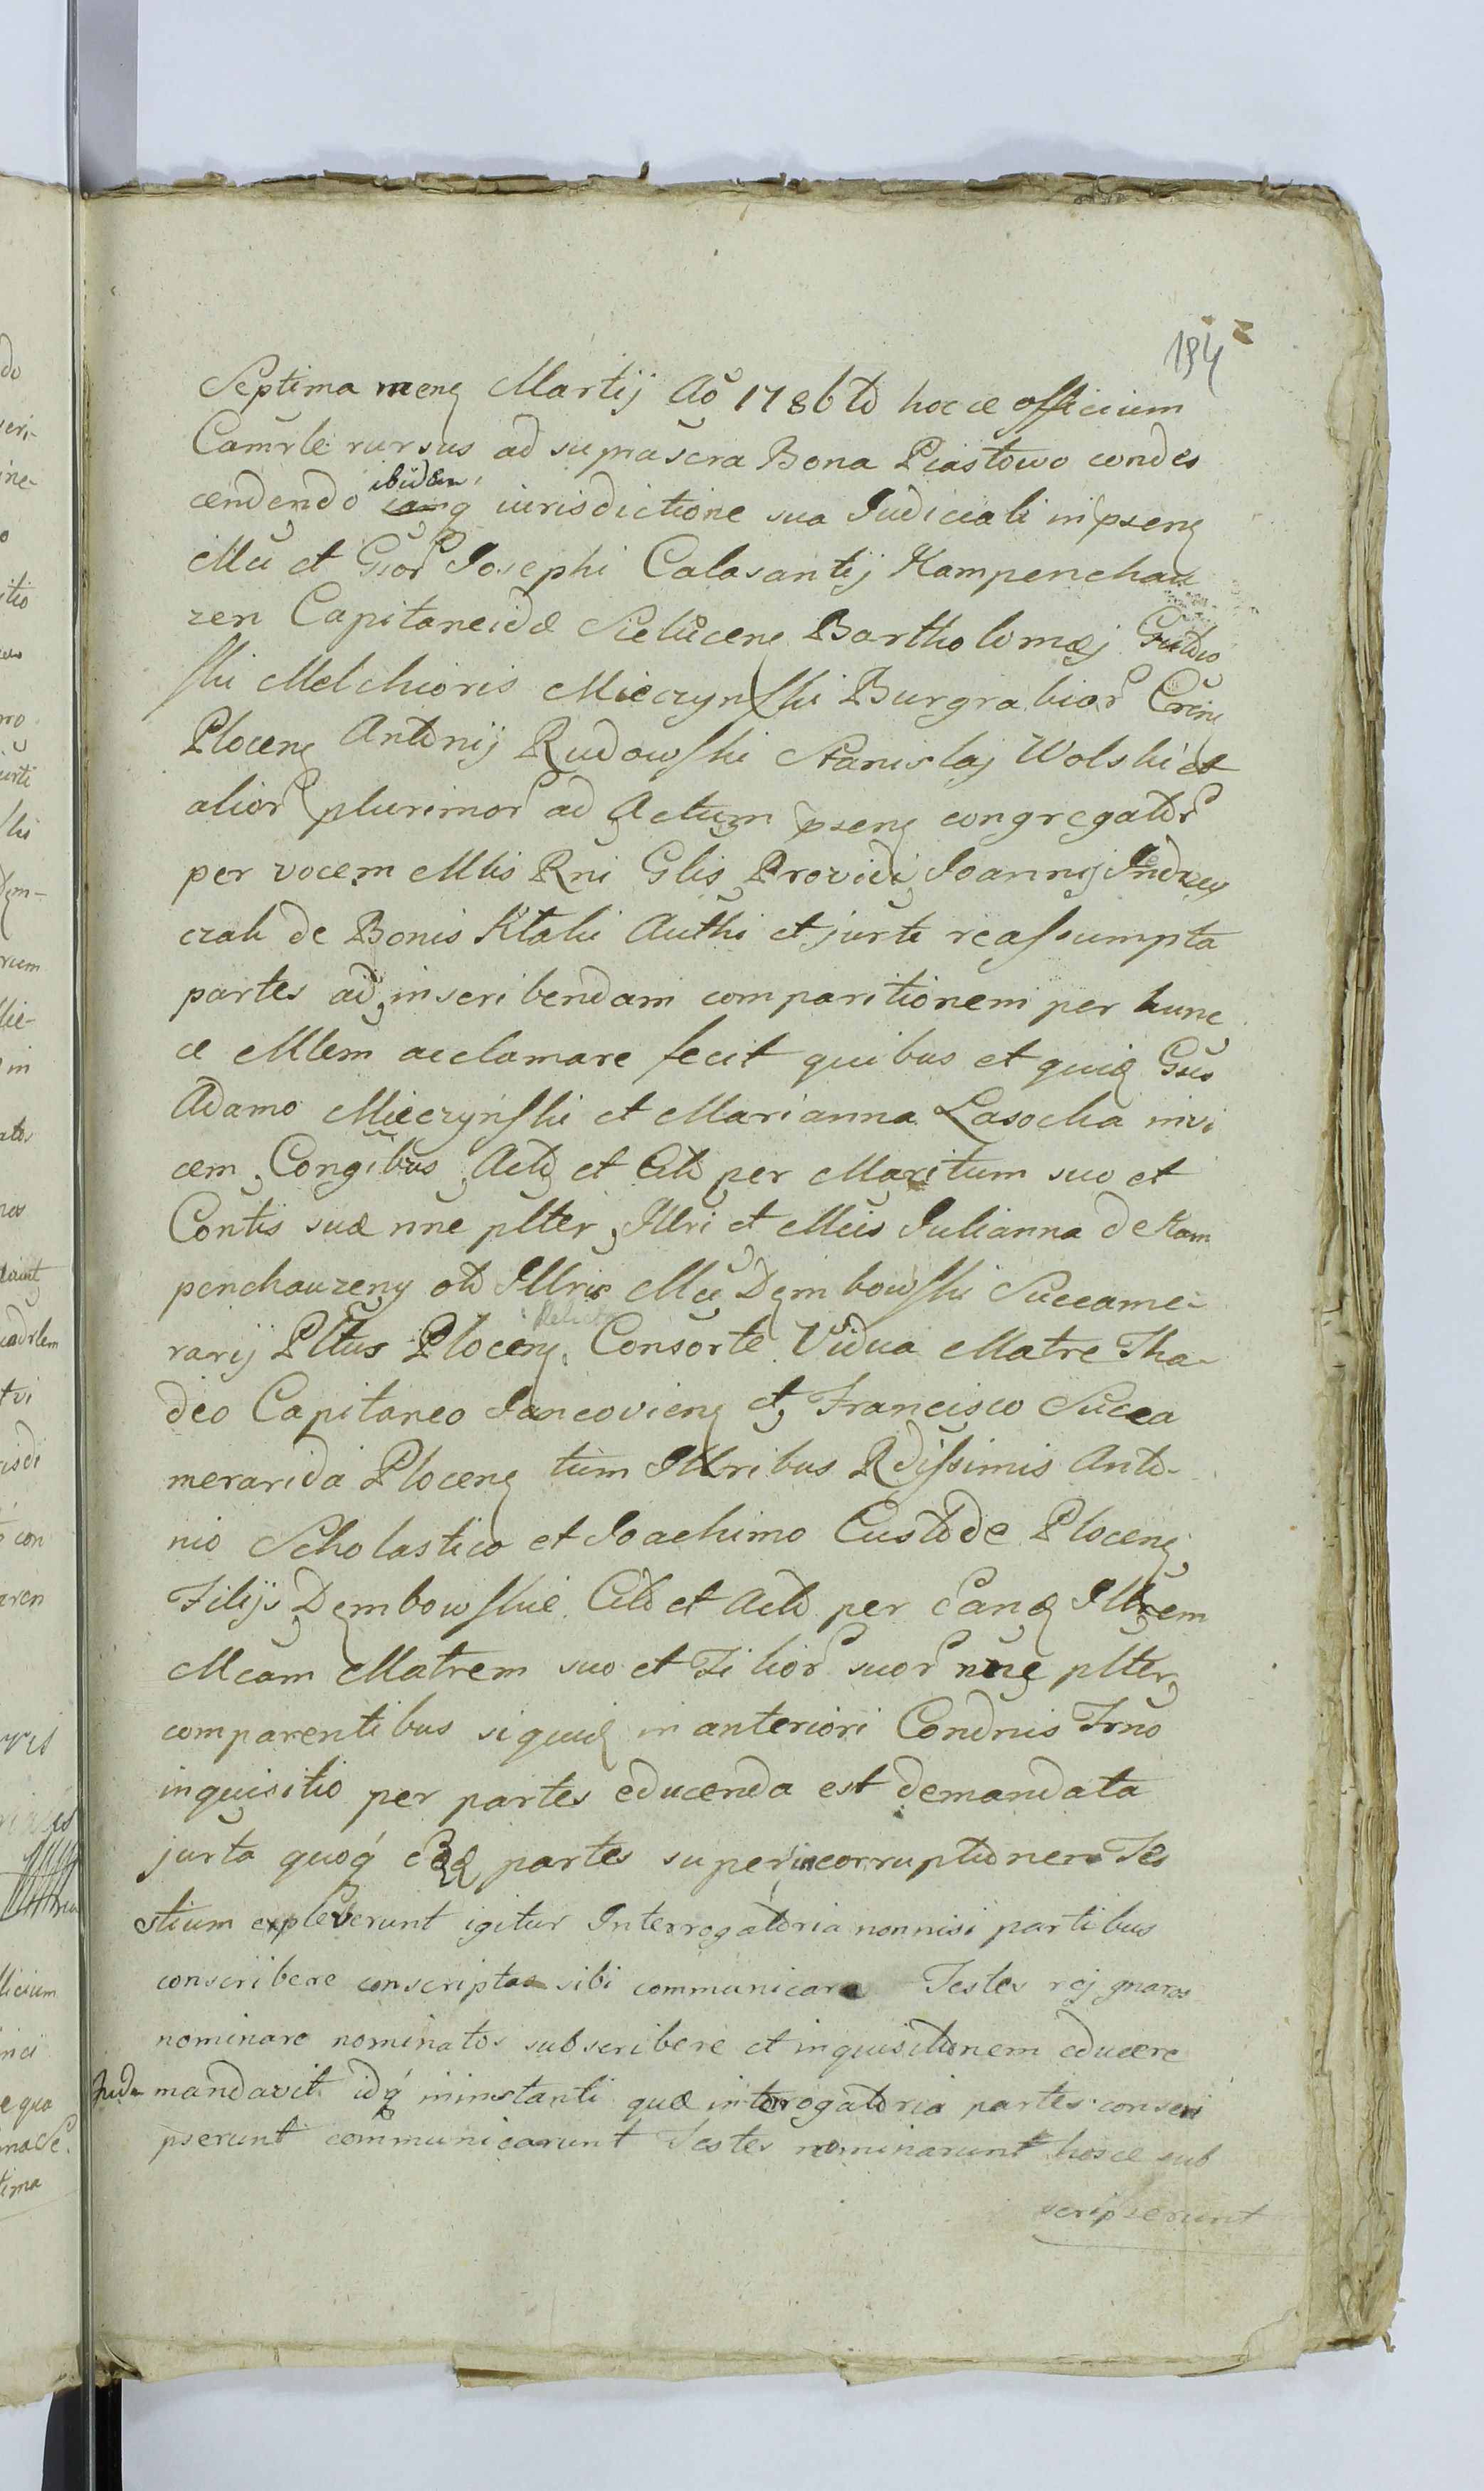 184
Septima meng Martij Aō 1786to hocce officium
Camrle rursus ad suprascra Bona Piastowo condes
cendendo ibidem iurisdictione sua Judiciali in pseng
Mci et Gsor Josephi Calasantij Kampenchau
zen Capitaneidæ Bartholomæj
ski Melchioris Mieczynski Burgrabior
Ploceng Antonij Rudowski Stanislaj Wolski et
alior plurimor ad Actum pseng congregator
per vocem Mlis Rni Glis Providi Joannis Jndrzey
czak de Bonis Ktaki Authi et jurti reassumpta
partes ad inscribendam comparitionem per hunc
ce Mlem acclamare fecit quibus et quidq Gsis
Adamo Mieczynski et Marianna Lasocka invi
cem Congibus Actō et Citō per Maritum suo et
Contis suæ nne plter, Jllri et Mcis Julianna de Kam
penchauzeng otō Jllris Mci Dembowski Succame-
rarij Pltus Ploceng Relicta Consorte Vidua Matre Tha-
deo Capitaneo Jancovieng et Francisco Succa
merarida Ploceng tum Jllribus Rdissimis Anto-
nio Scholastico et Joachimo Custode Ploceng
Filijs Dembowskie Citō et Actō per eandq Jllrem
Mcam Matrem suo et Filior suor nne plter,
comparentibus siquidq in anteriori Condnis Trno
inquisitio per partes educenda est demandata
jurta quoq́ partes super incorruptionem Tes
stium expleverunt igitur Interrogatoria nonnisi partibus
conscribere conscriptas sibi communicare Testes rej gnaros
nominare nominatos subscribere et inquisitionem educere
mandavit idq́ in instanti quæ interrogatoria partes conscri
pserunt communicarunt Testes nominarunt hosce sub
scripserunt